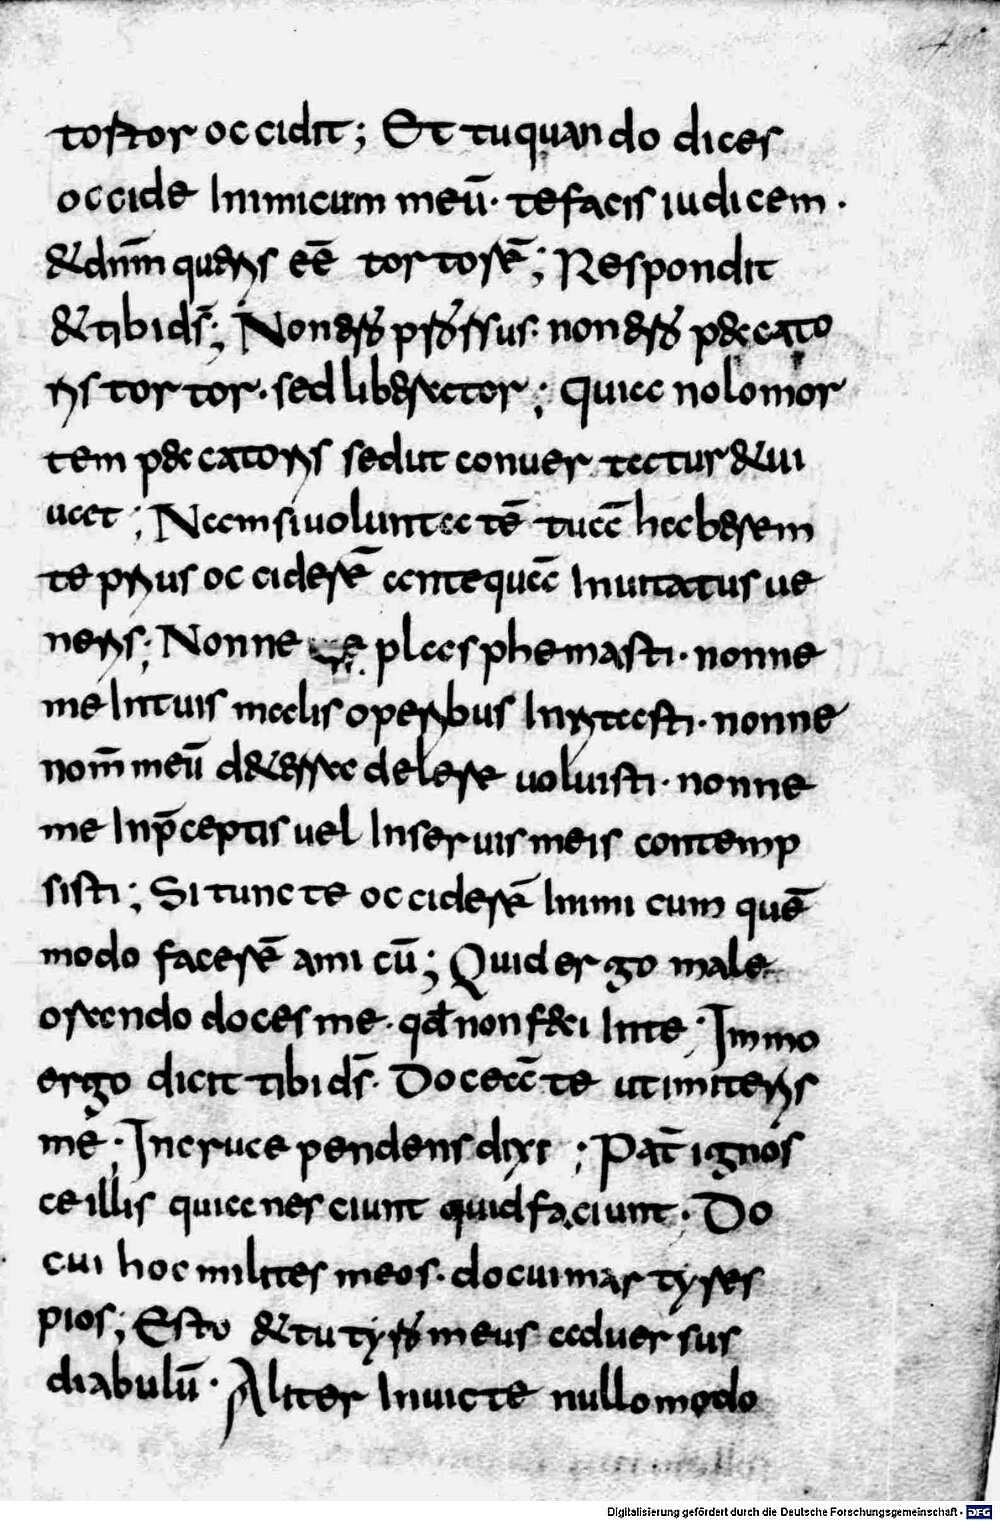 tortor occidit; Et tu quando dices
occide Inimicum meū· te facis iudicem·
&dnm̄ quaeris eē tortorē; Respondit
&tibi ds̄; Non ero p̄ssus· non ero peccato
ris tortor· sed liberator; quia nolo mor
tem peccatoris sed ut conuertatur & ui
uat; Nam si uoluntatē tuā haberem
te prius occiderē antequā Inuitatus ue
neris; Nonne me plasphemasti· nonne
me In tuis malis operibus Inritasti· nonne
nom̄ meū de terra delere uoluisti· nonne
me In p̄ceptis uel In seruis meis contemp
sisti; Si tunc te occiderē Inimicum quē
modo facerē amicū; Quid ergo male
orando doces me· qd̄ non feci In te; Immo
ergo dicit tibi ds̄· Doceā te ut imiteris
me; In cruce pendens dixi; Pat̄ ignos
ce illis quia nesciunt quid faciunt; Do
cui hoc milites meos· docui martyres
pios; Esto & tu tyro meus aduersus
diabulū· Aliter Inuicte nullomodo
Digitalisierung gefördert durch die Deutsche Forschungsgemeinschaft - DFG